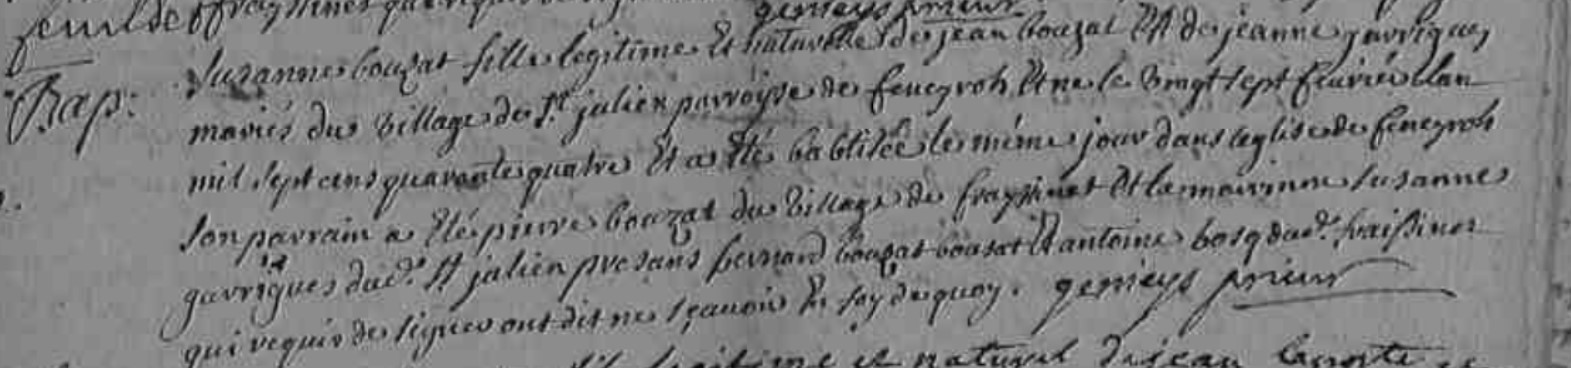 genieys prieur
Suzanne bouzat fille legitime Et naturelle de jean bouzat Et de jeanne garrigues
Bap:
mariés du village de St julien parroisse de feneyrols Et ne le vingt sept fevrier lan
mil sept cens quarante quatre Et a eté babtisée le même jour dans leglise de feneyrols
son parrain a eté pierre bouzat du village de frayssinet Et la marrinne suzanne
garrigues dud. St julien presans bernard bouzat bouzat Et antoine bosq dud. fraissines
qui requis de signer ont dit ne sçavoir En foy de quoy. genieys prieur
legitime et naturel de jean